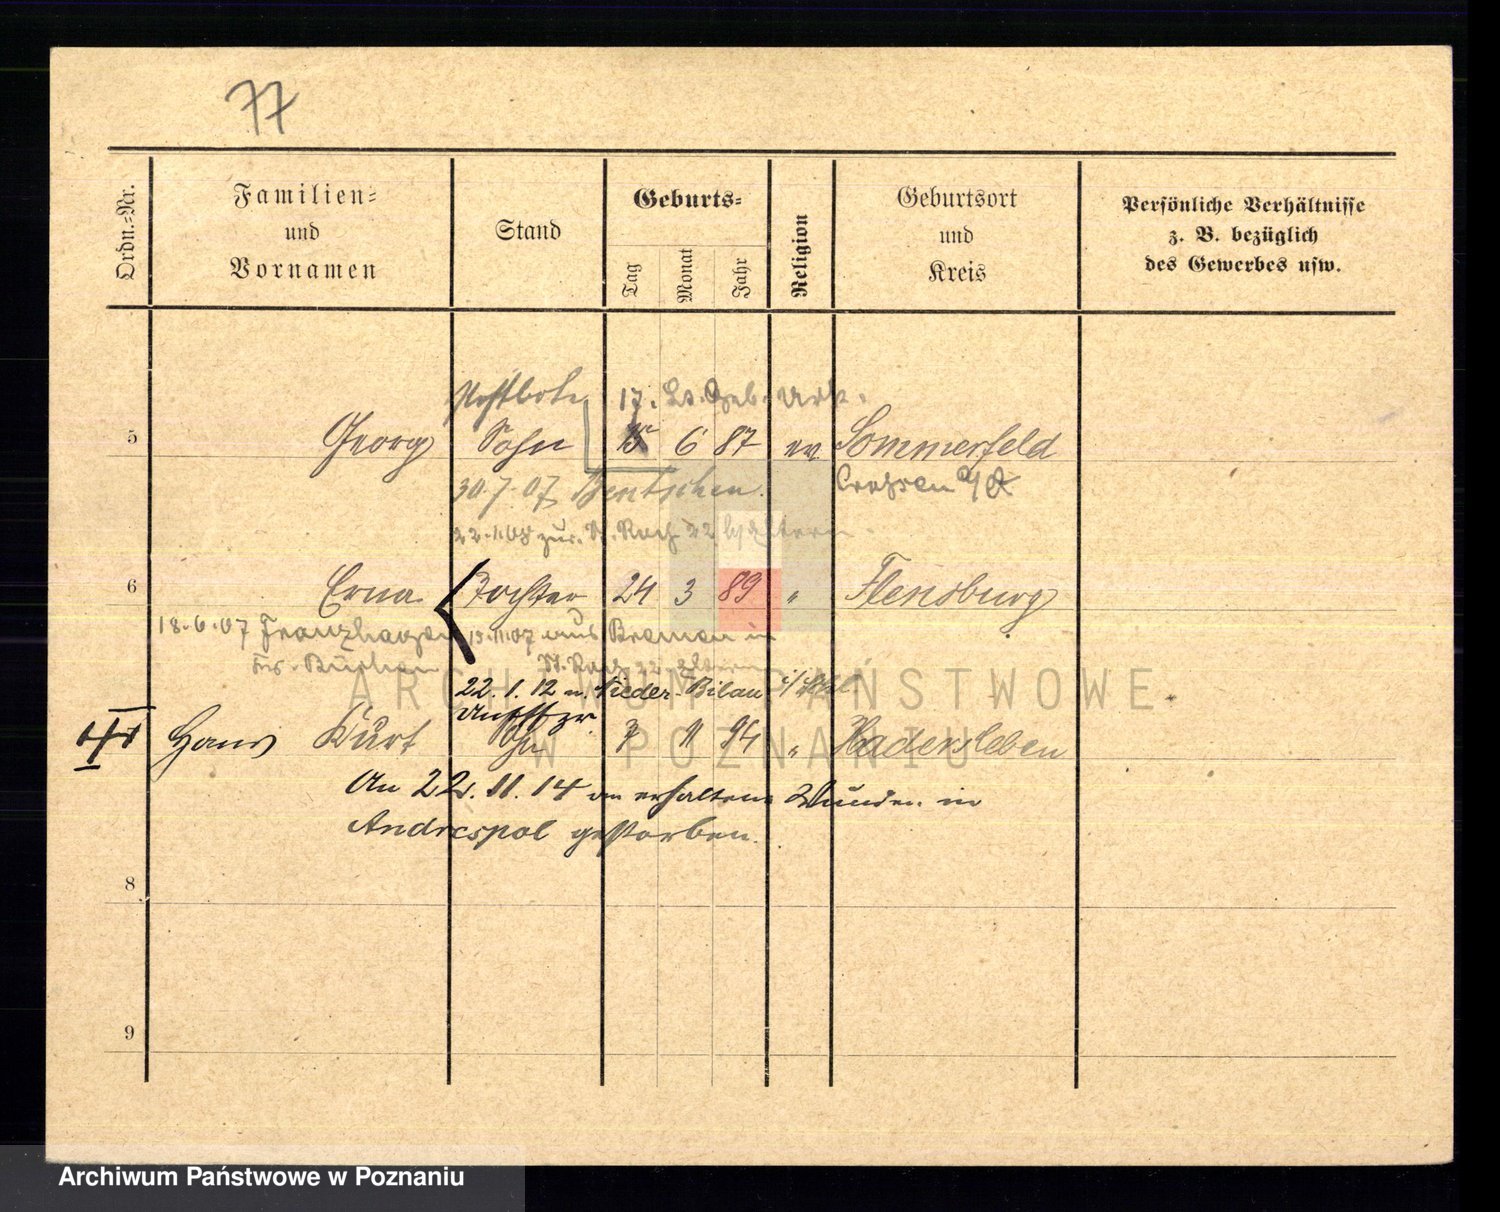 77
Ordn.-Nr.
Familien-
und
Vornamen
Stand
Geburts-
Tag
Monat
Jahr
Religion
Geburtsort
und
Kreis
Persönliche Verhältnisse
z. B. bezüglich
des Gewerbes usw.
Postbote 17. Lt. Geb. Urk.
5 Georg Sohn 15 6 87 ev Sommerfeld
Crossen a/O
30.7.07 Bentschen.
22.1.08 zur. St. Roch 22 b/Eltern
6 Erna Tochter 24 3 89 " Flensburg
18.6.07 Franzhagen 15.11.07 aus Bremen in
St. Roch 22 Eltern
22.1.12 n. Nieder-Bilau
Hans Kurt 7 11 94 " Hadersleben
An 22.11.14 an erhaltenen Wunden in
Andrespol gestorben.
8
9
ARCHIWUM PAŃSTWOWE
W POZNANIU
Archiwum Państwowe w Poznaniu